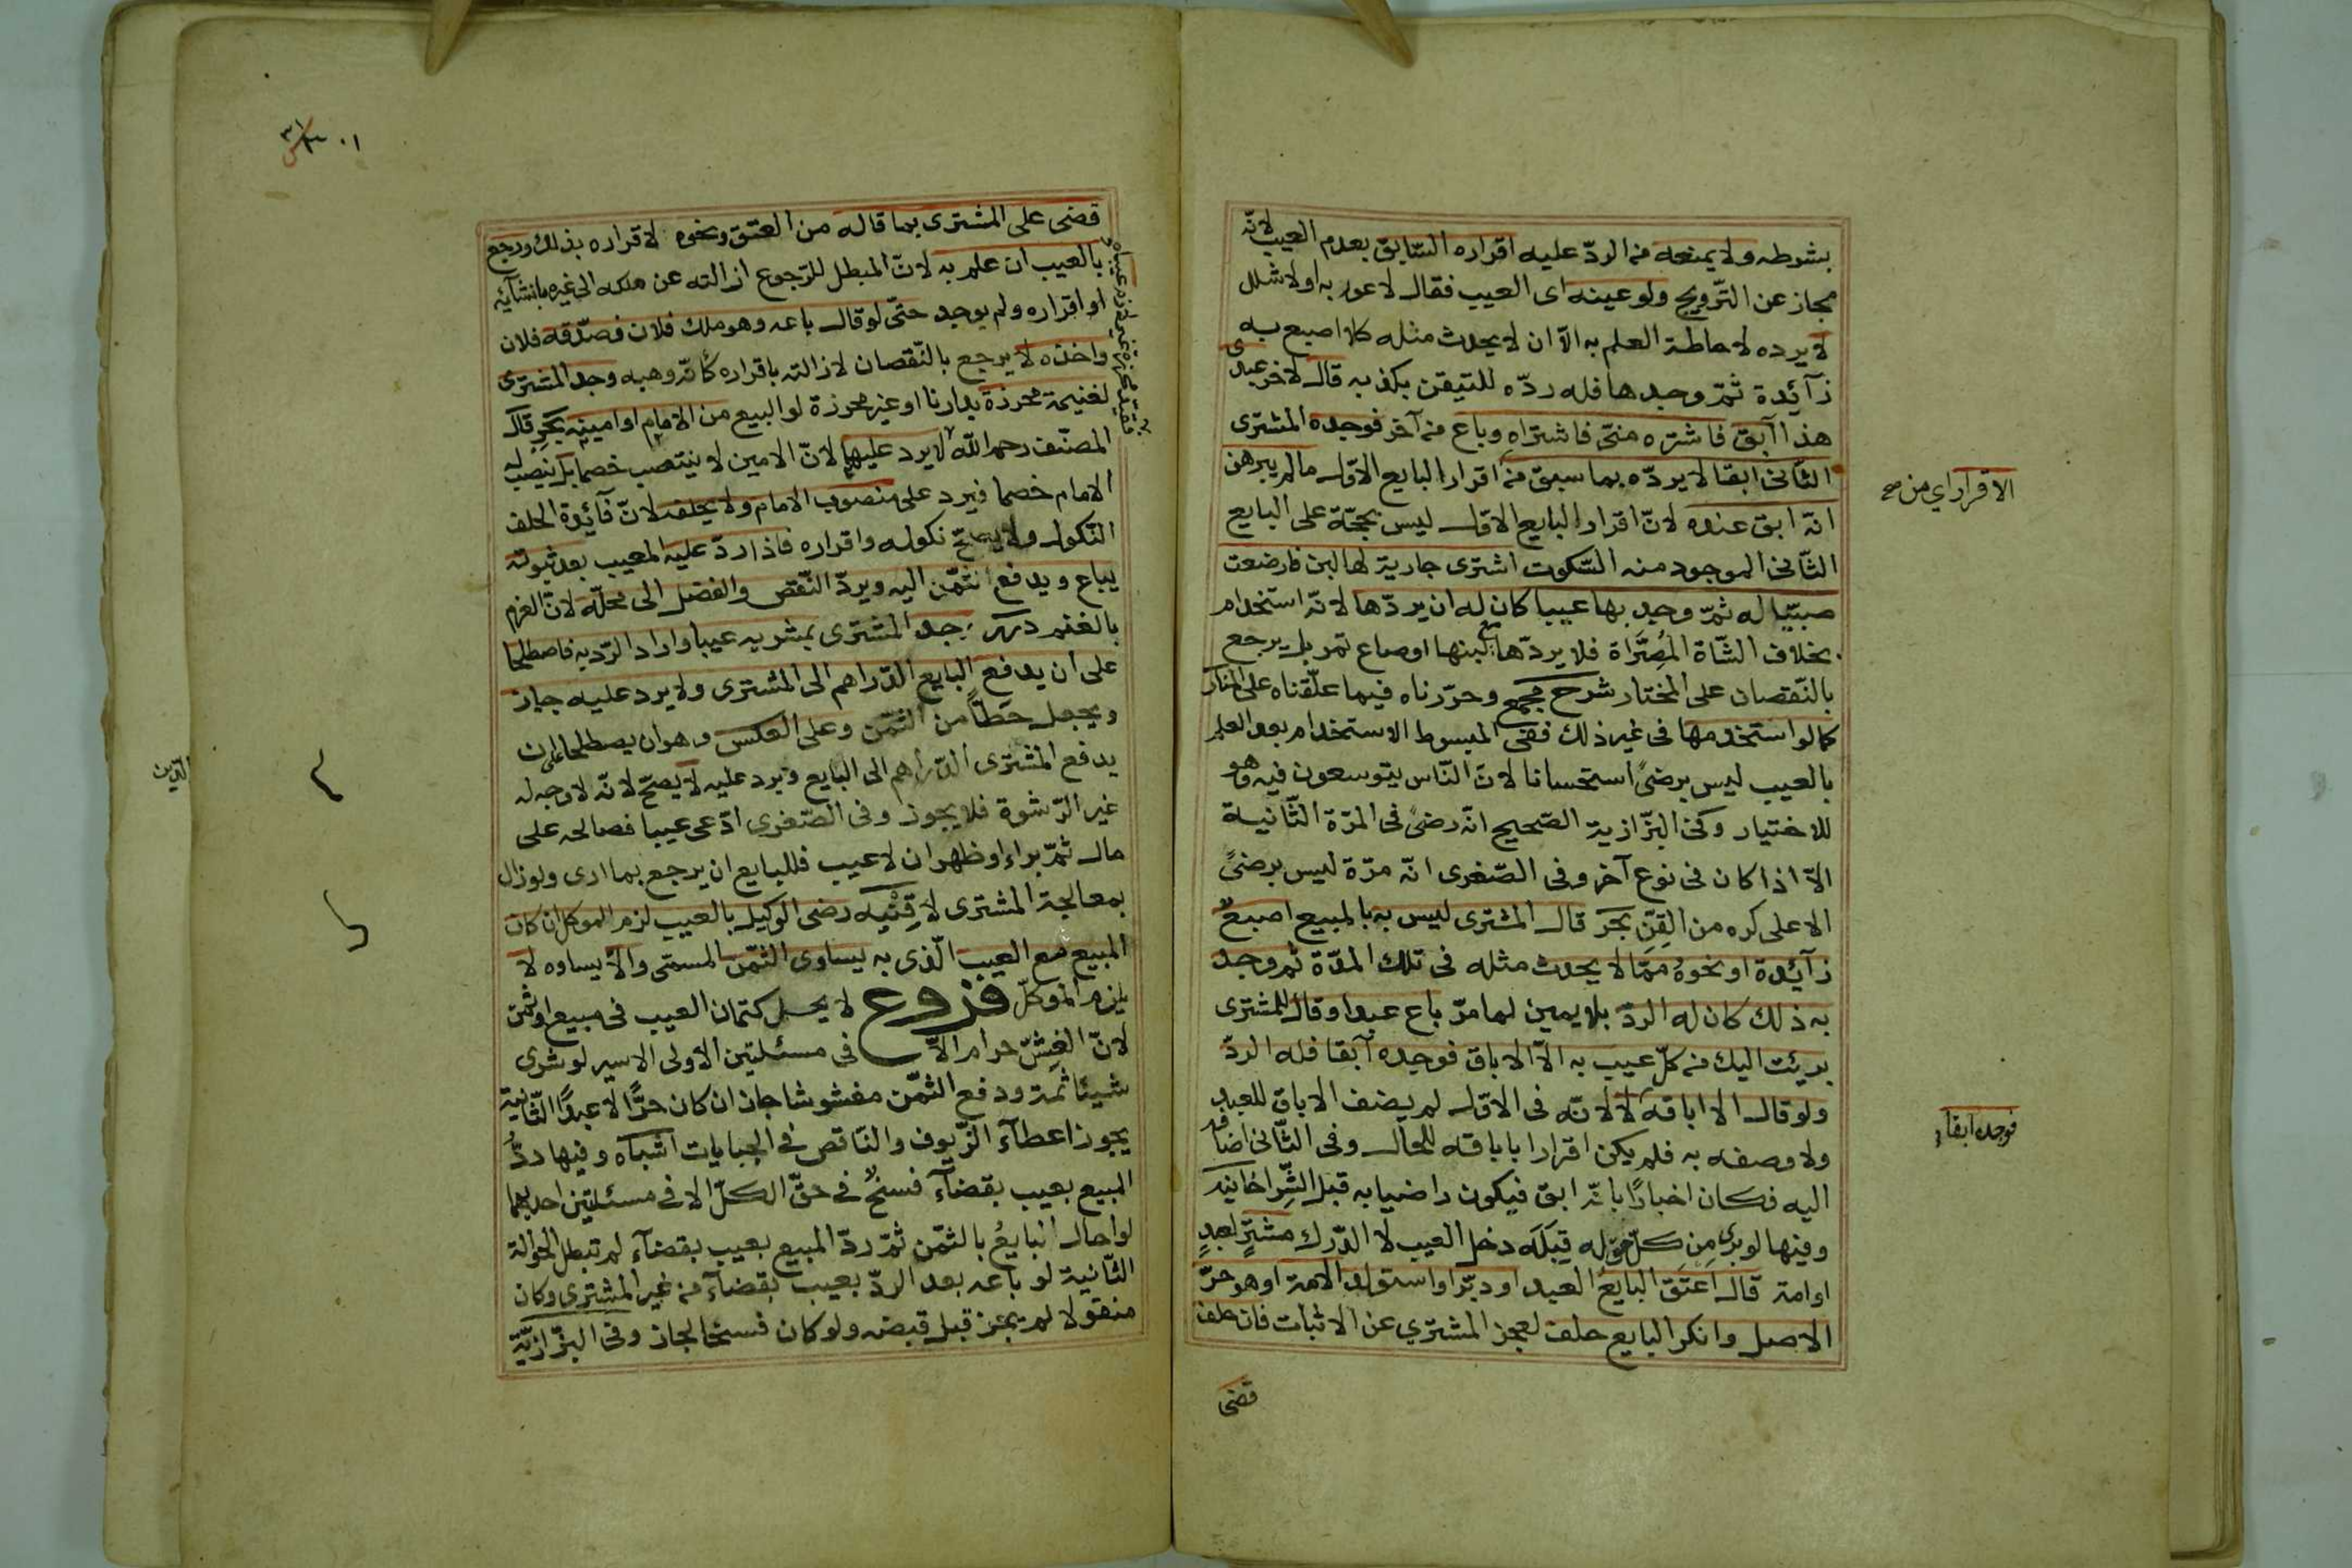 بشرطه ولا يمنعه من الردّ عليه اقراره السّابق بعدم العيب لانّه
مجاز عن التّرويج ولو عينه اى العيب فقال لا عور به او لا شلل
لا يرده لاحاطة العلم به الآ ان لا يحدث مثله كلا اصبع به
زآئدة ثمّ وجدها فله ردّه للتيقن بكذبه قال لآخر عبدى
هذا آبق فاشتره منّى فاشتراه وباع من آخر فوجده المشترى
الثّانى ابقا لا يردّه بما سبق من اقرار البايع الاوّل مالم يبرهن
انّه ابق عنده لانّ اقرار البايع الاوّل ليس بحجّة على البايع
الثّانى الموجود منه السّكوت اشترى جارية لها لبن فارضعت
صبيّا له ثمّ وجد بها عيبا كان له ان يردّها لانّه استخدام
بخلاف الشّاة المُصَرَّاة فلا يردّها مع لبنها او صاع تمر بل يرجع
بالنّقصان على المختار شرح مجمع وحرّرناه فيما علّقناه على المنار
كما لو استخدمها فى غير ذلك ففى المبسوط الاستخدام بعد العلم
بالعيب ليس برضىً استحسانا لانّ النّاس يتوسعون فيه وهو
للاختيار وفى البزّازية الصّحيح انّه رضىً فى المرّة الثّانية
الآ اذا كان فى نوع آخر وفى الصّغرى انّه مرّة ليس برضىً
الا على كره من القِنّ بحر قال المشترى ليس به بالمبيع اصبعٌ
زآئدة او نحوهُ ممّا لا يحدث مثله فى تلك المدّة ثم وجد
به ذلك كان له الردّ بلا يمين لما مرّ باع عبدا وقال للمشترى
برئت اليك من كلّ عيب به الآ الاباق فوجده آبقا فله الردّ
ولو قال الا اباقه لا لانّه فى الاوّل لم يضف الاباق للعبد
ولا وصفه به فلم يكن اقرارا باباقه للحال وفى الثّانى اضافه
اليه فكان اخبارًا بانّه ابق فيكون راضيا به قبل الشّرا خانية
وفيها لو برى مِن كلّ حقّ له قِبَلَه دخل العيب لا الدّرك مشترٍ لعبدٍ
او امة قال اعتَق البايعُ العبد او دبّر او استولد الامة او هو حرّ
الاصل وانكر البايع حلف لعجز المشتري عن الاثبات فان حلف
قضى
الاقرار اي من صح
فوجده آبقا
قضى على المشترى بما قاله من العتق ونحوه لاقراره بذلك ورجع
بالعيب ان علم به لانّ المبطل للرّجوع ازالته عن ملكه الى غيره بانشآئه
او اقراره ولم يوجد حتّى لو قال باعه وهو ملك فلان فصدّقه فلان
واخذه لا يرجع بالنّقصان لازالته باقراره كأنّه وهبه وجد المشترى
لغنيمة محرزة بدارنا او غير محرزة لو البيع من الامام او امينه بحر قال
المصنّف رحمه اللّه لا يرد عليهما لانّ الامين لا ينتصب خصما بل ينصب له
الامام خصما فيرد على منصوب الامام ولا يحلف لانّ فآئدة الحلف
النّكول ولا يصحّ نكوله واقراره فاذا ردّ عليه المعيب بعد ثبوته
يباع ويدفع الثمّن اليه ويردّ النّقص والفضل الى محلّه لانّ الغرم
بالغنم درر وجد المشترى بمشريه عيبا واراد الرّد به فاصطلحا
على ان يدفع البايع الدّراهم الى المشترى ولا يرد عليه جاز
ويجعل حَطًّا من الثّمن وعلى العكس وهو ان يصطلحا على ان
يدفع المشترى الدّراهم الى البايع ويرد عليه لا يصحّ لانّه لا وجه له
غير الرّشوة فلا يجوز وفى الصّغرى ادّعى عيبا فصالحه على
مال ثمّ براء او ظهر ان لا عيب فللبايع ان يرجع بما ادى ولو زال
بمعالجة المشترى لا قِنْيَه رضى الوكيل بالعيب لزم الموكل ان كان
المبيع مع العيب الّذى به يساوى الثّمن المسمّى والّا يساوه لا
يلزم الموكلّ فروع لا يحلّ كتمان العيب فى مبيع او ثمن
لانّ الغِشّ حرام الّا فى مسئلتين الأولى الاسير لو شرى
شيئا ثمة ودفع الثّمن مغشوشا جاز ان كان حرًّا لا عبدًا الثّانية
يجوز اعطآء الزّيوف والنّاقص فى الجبايات اشباه وفيها ردُّ
المبيع بعيب بقضآءٍ فسخٌ فى حقّ الكلّ الا فى مسئلتين احديهما
لو احال البايعُ بالثّمن ثمّ ردّ المبيع بعيب بقضآءٍ لم تبطل الحوالة
الثّانية لو باعه بعد الردّ بعيب بقضآءٍ من غير المشترى وكان
منقولا لم يجز قبل قبضه ولو كان فسخا لجاز وفى البزّازيّة